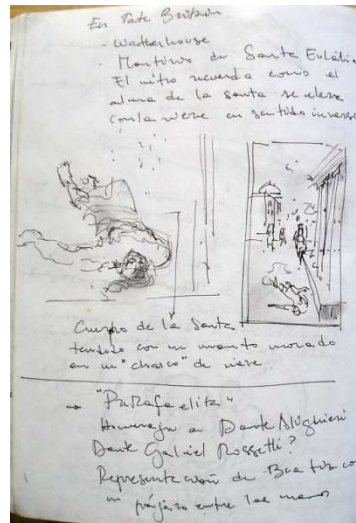 En Tate Britain
- Waterhouse
- Martirio de Santa Eulalia
El mito recuerda como el
alma de la santa se eleva
con la nieve en sentido inverso
Cuerpo de la Santa
tendido con un manto morado
en un "charco" de nieve.
→ "PreRafaelita"
Homenaje a Dante Alighieri
Dante Gabriel Rossetti?
Representación de Beatriz con
un pájaro entre las manos